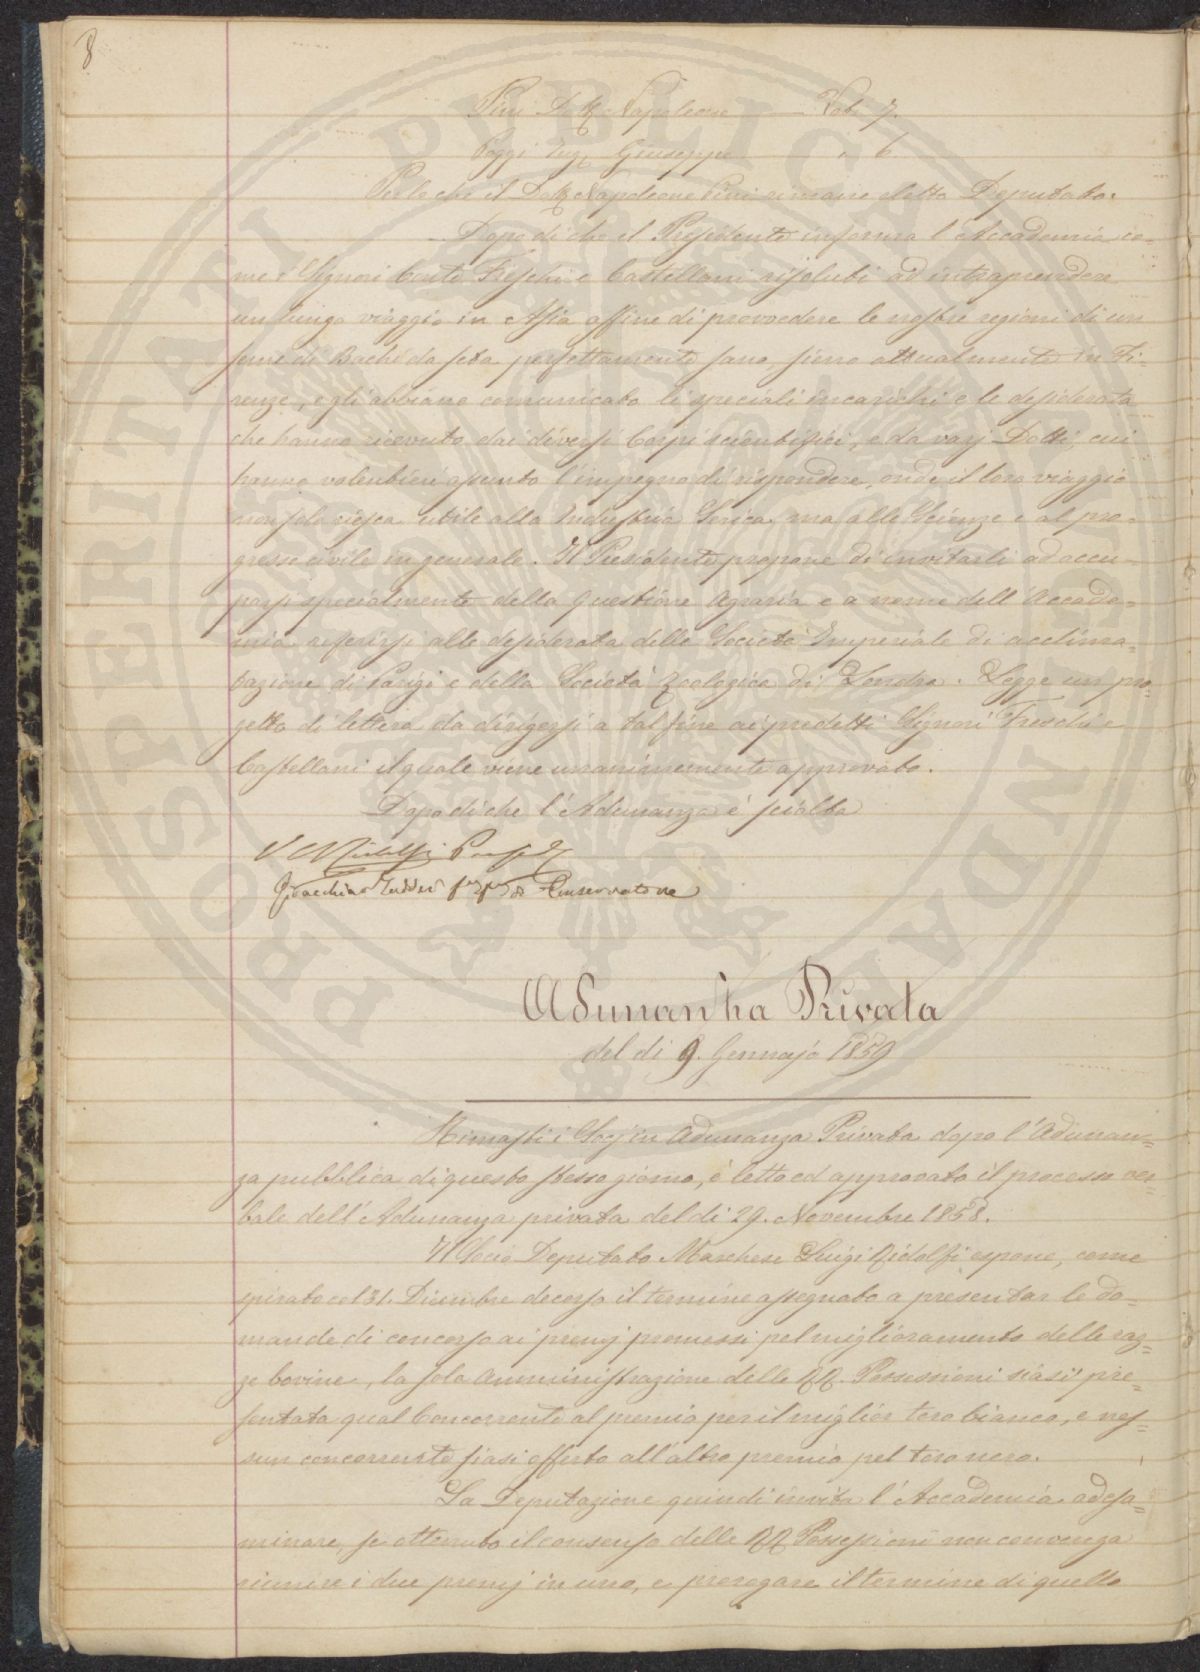 8
Pini Dott. Napoleone — Voti 7.
Poggi Giuseppe " 6
Per lo che il Dott. Napoleone Pini rimane eletto Deputato.
Dopo di che il Presidente informa l'Accademia co-
me i Signori Conte Freschi e Castellani risoluti ad intraprendere
un lungo viaggio in Asia affine di provvedere le nostre regioni di un
seme di Bachi da seta perfettamente sano, sieno attualmente in Fi-
renze, e gli abbiano comunicato li speciali incarichi e le desiderata
che hanno ricevuto dai diversi Corpi scientifici, e da varj Dotti, cui
hanno volentieri assunto l'impegno di rispondere, onde il loro viaggio
non solo riesca utile alla Industria Serica, ma alle Scienze e al pro-
gresso civile in generale. Il Presidente propone di invitarli ad occu-
parsi specialmente della questione Agraria e a nome dell'Accade-
mia riferirsi alle desiderata della Società Imperiale di acclima-
tazione di Parigi e della Società Zoologica di Londra. Legge un pro-
getto di lettera da dirigersi a tal fine ai predetti Signori Freschi e
Castellani il quale viene unanimemente approvato.
Dopo di che l'Adunanza è sciolta
Ridolfi
Conservatore
Adunanza Privata
del di 9. Gennajo 1859
Rimasti i Socj in Adunanza Privata dopo l'Adunan=
za pubblica di questo stesso giorno, è letto ed approvato il processo ver=
bale dell'Adunanza privata del di 29. Novembre 1858.
Il Socio Deputato Marchese Luigi Ridolfi espone, come
spirato col 31. Dicembre decorso il termine assegnato a presentar le do=
mande di concorso ai premj promessi pel miglioramento delle raz=
ze bovine, la sola Amministrazione delle RR. Possessioni siasi pre=
sentata qual Concorrente al premio per il miglior toro bianco, e nes=
sun concorrente siasi offerto all'altro premio pel toro nero.
La Deputazione quindi invita l'Accademia ad esa=
minare, se ottenuto il consenso delle RR Possessioni non convenga
riunire i due premj in uno, e prorogare il termine di quello